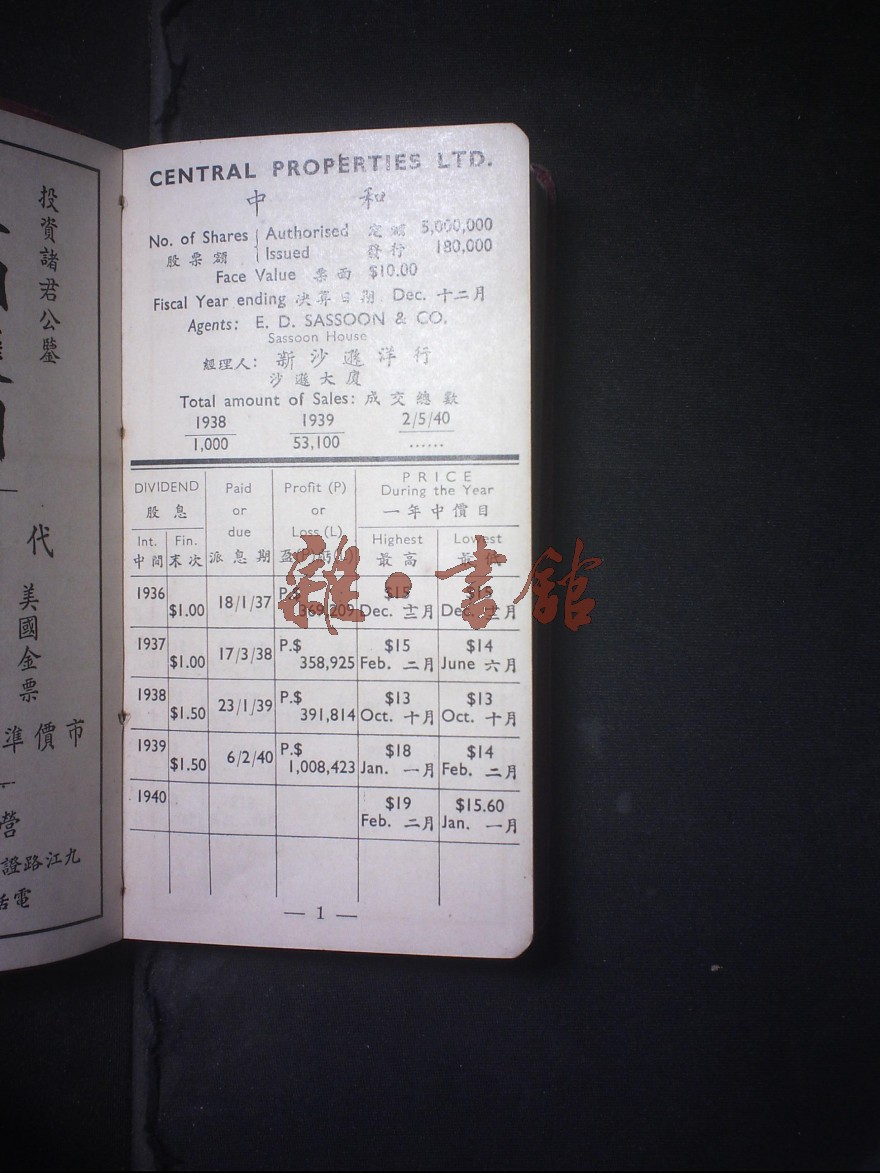 投資諸君公鑒
代
美國金票
市價準
營
九江路證
電話
CENTRAL PROPERTIES LTD.
中 和
No. of Shares { Authorised 定額 5,000,000
股票額 { Issued 發行 180,000
Face Value 票面 $10.00
Fiscal Year ending 決算日期 Dec. 十二月
Agents: E. D. SASSOON & CO.
Sassoon House
經理人: 新沙遜洋行
沙遜大廈
Total amount of Sales: 成交總數
1938 1939 2/5/40
1,000 53,100 ......
DIVIDEND 股息 Paid or due 派息期 Profit (P) or Loss (L) PRICE During the Year 一年中價目
Int. 中間 Fin. 末次 Highest 最高 Lowest 最低
1936 $1.00 18/1/37 P.$ 369,209 $15 Dec. 十二月 $15 Dec. 十二月
1937 $1.00 17/3/38 P.$ 358,925 $15 Feb. 二月 $14 June 六月
1938 $1.50 23/1/39 P.$ 391,814 $13 Oct. 十月 $13 Oct. 十月
1939 $1.50 6/2/40 P.$ 1,008,423 $18 Jan. 一月 $14 Feb. 二月
1940 $19 Feb. 二月 $15.60 Jan. 一月
— 1 —
雜·書館